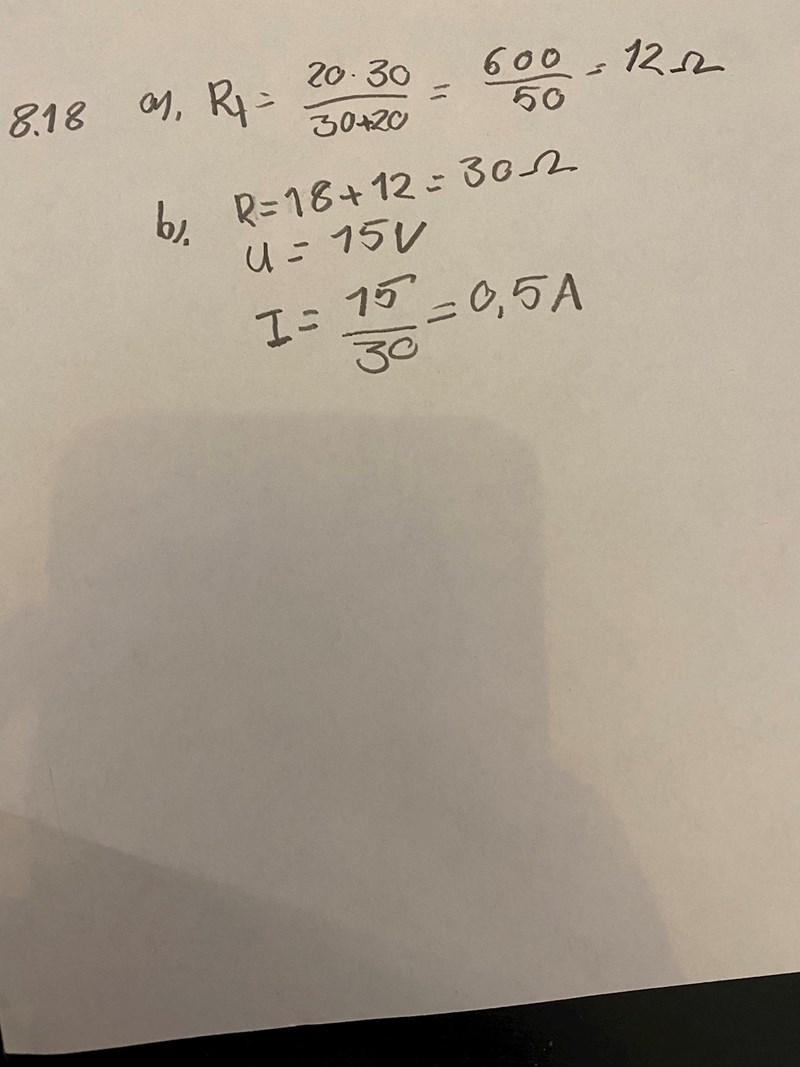 8.18 a), Rt = 20·30 / 30+20 = 600 / 50 = 12 Ω
b). R = 18 + 12 = 30 Ω
U = 15V
I = 15 / 30 = 0,5 A